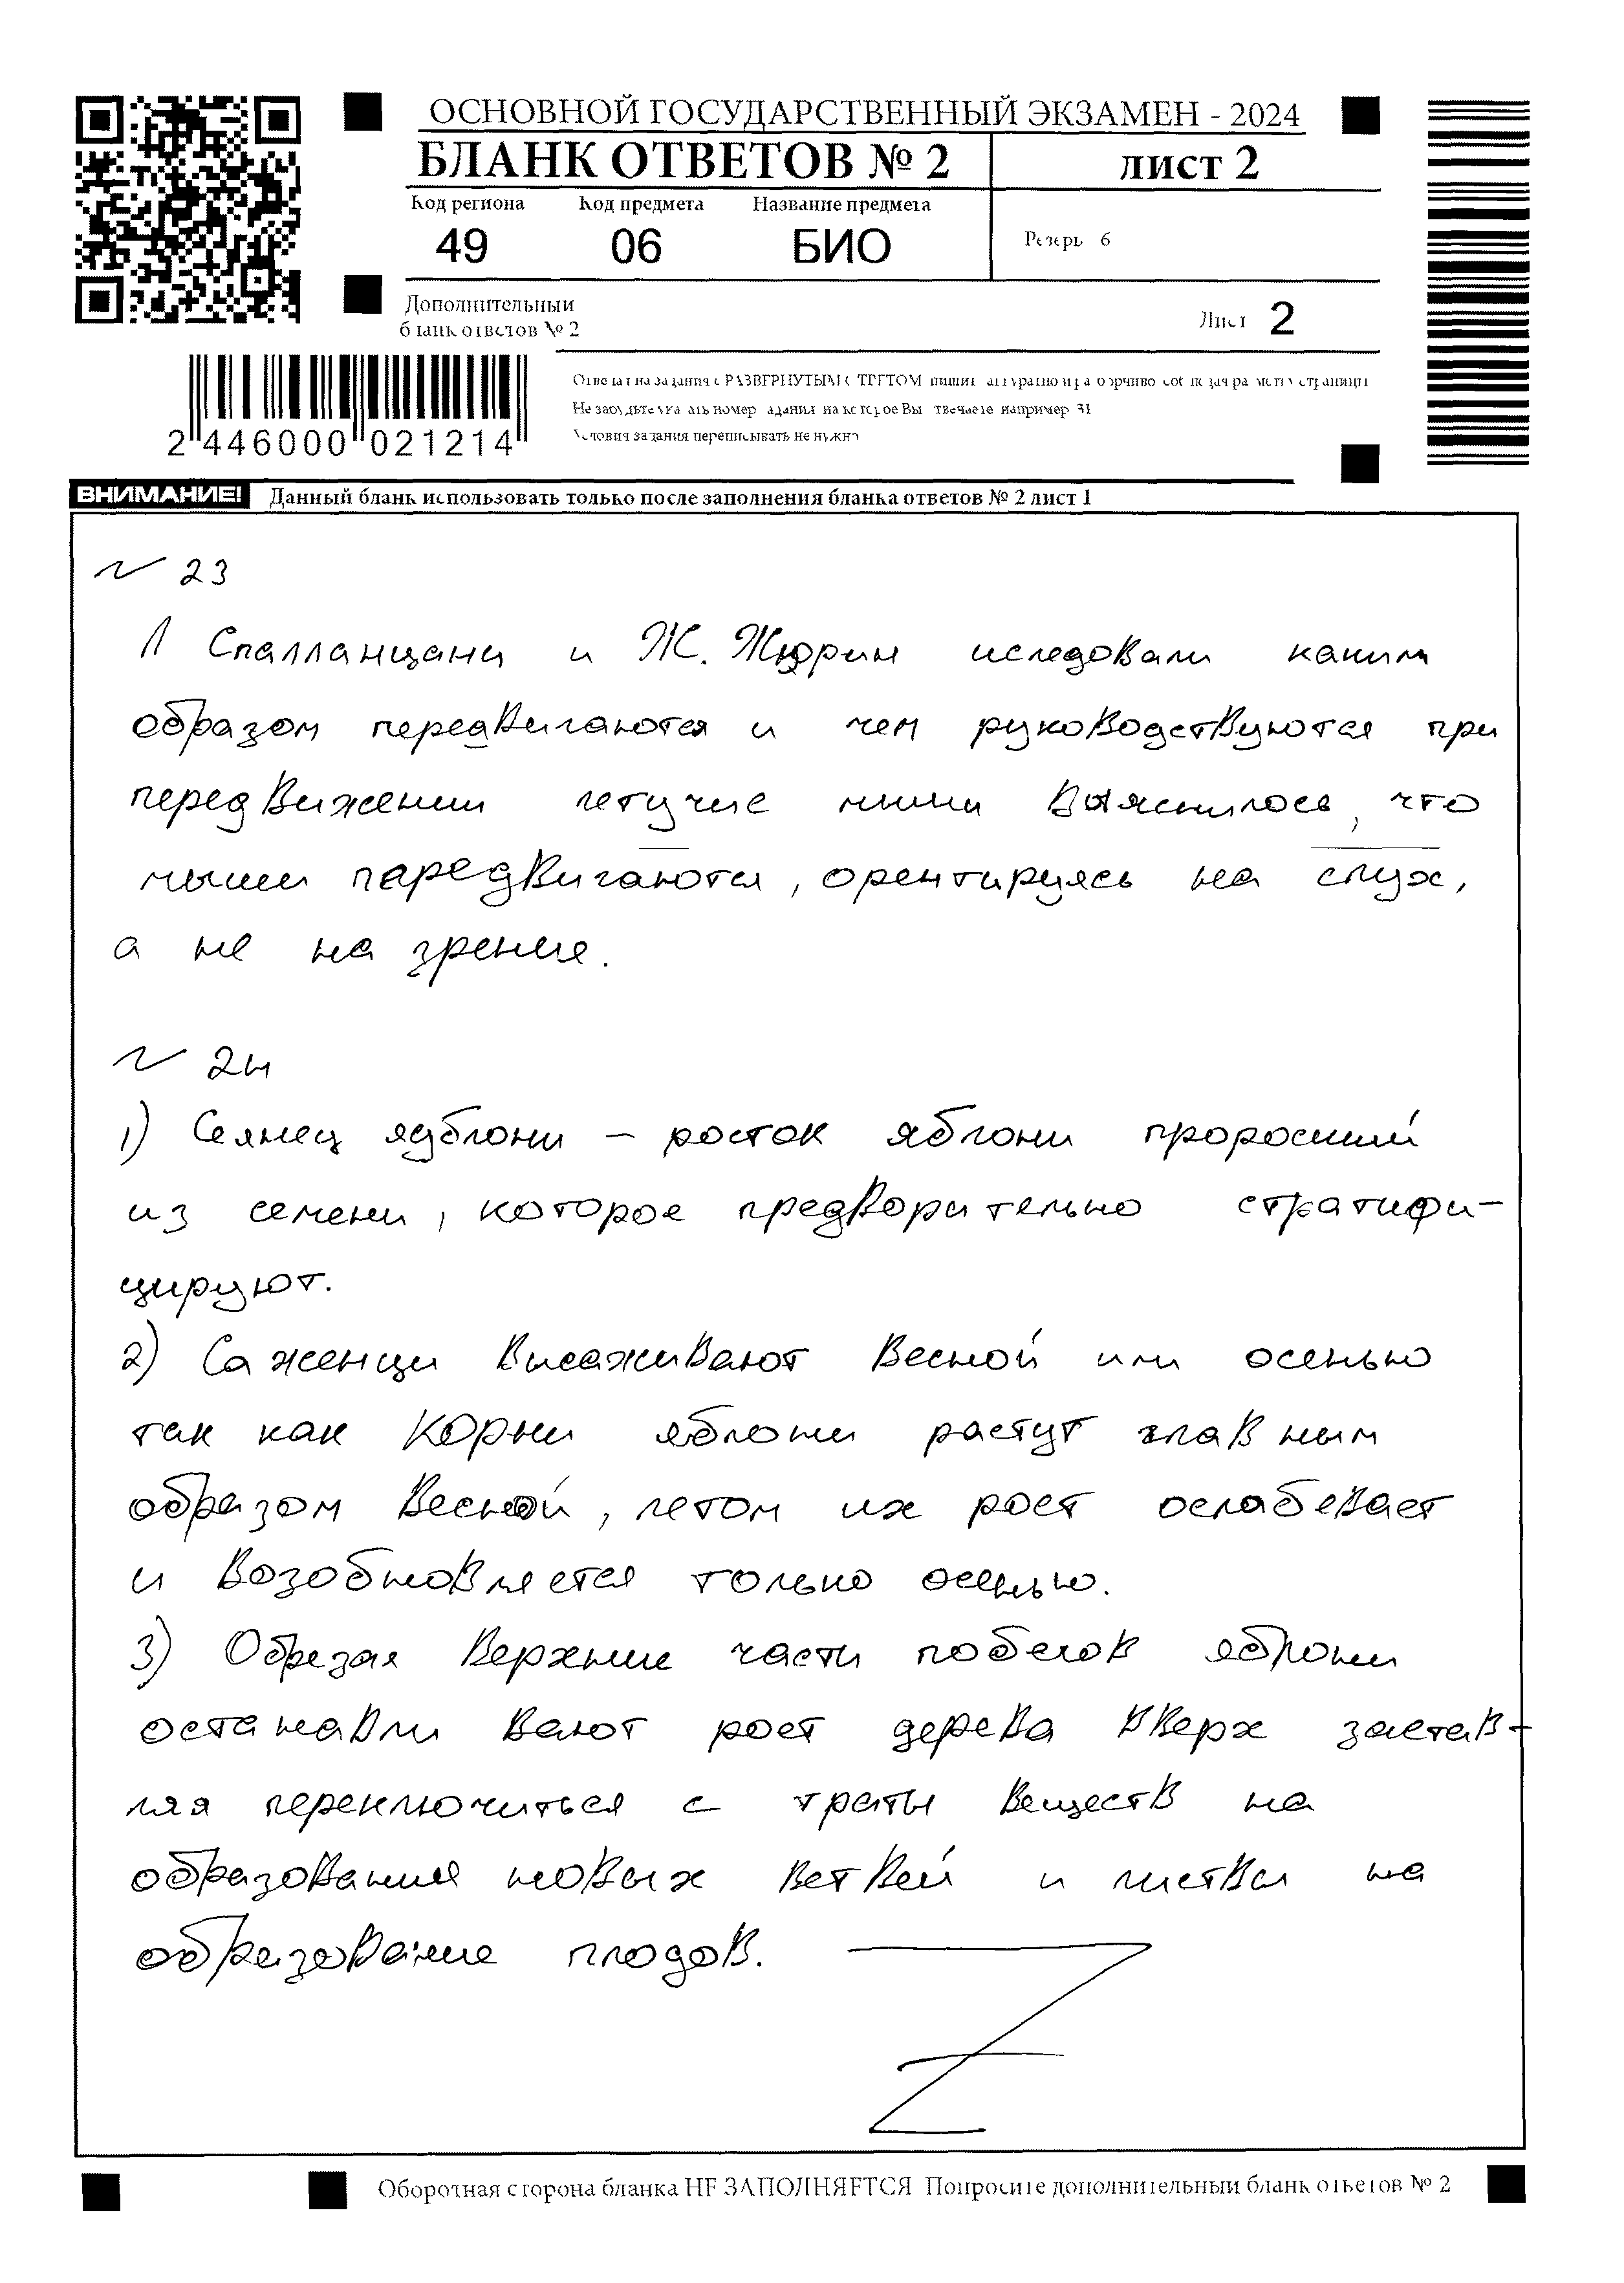 ОСНОВНОЙ ГОСУДАРСТВЕННЫЙ ЭКЗАМЕН - 2024
БЛАНК ОТВЕТОВ № 2
ЛИСТ 2
Код региона Код предмета Название предмета
49 06 БИО
Резерв 6
Дополнительный
бланк ответов № 2
Лист 2
Не забудьте указать номер задания на которое Вы отвечаете например 31
Условия задания переписывать не нужно
2 446000 021214
ВНИМАНИЕ! Данный бланк использовать только после заполнения бланка ответов № 2 лист 1
№ 23
Л Спалланцани и Ж. Жюрин иследовали каким
образом передвигаются и чем руководствуются при
передвижении летучие мыши Выяснилось, что
мыши паредвигаются, орентируясь на слух,
а не на зрение.
№ 24
1) Сеянец яблони – росток яблони проросший
из семени, которое предворительно стратифи-
цируют.
2) Саженцы высаживают весной или осенью
так как корни яблони растут главным
образом весной, летом их рост ослабевает
и возобновляется только осенью.
3) Обрезая верхние части побегов яблони
останавливают рост дерева вверх застав-
ляя переключиться с траты веществ на
образования новых ветвей и листвы на
образование плодов.
Оборотная сторона бланка НЕ ЗАПОЛНЯЕТСЯ Попросите дополнительный бланк ответов № 2